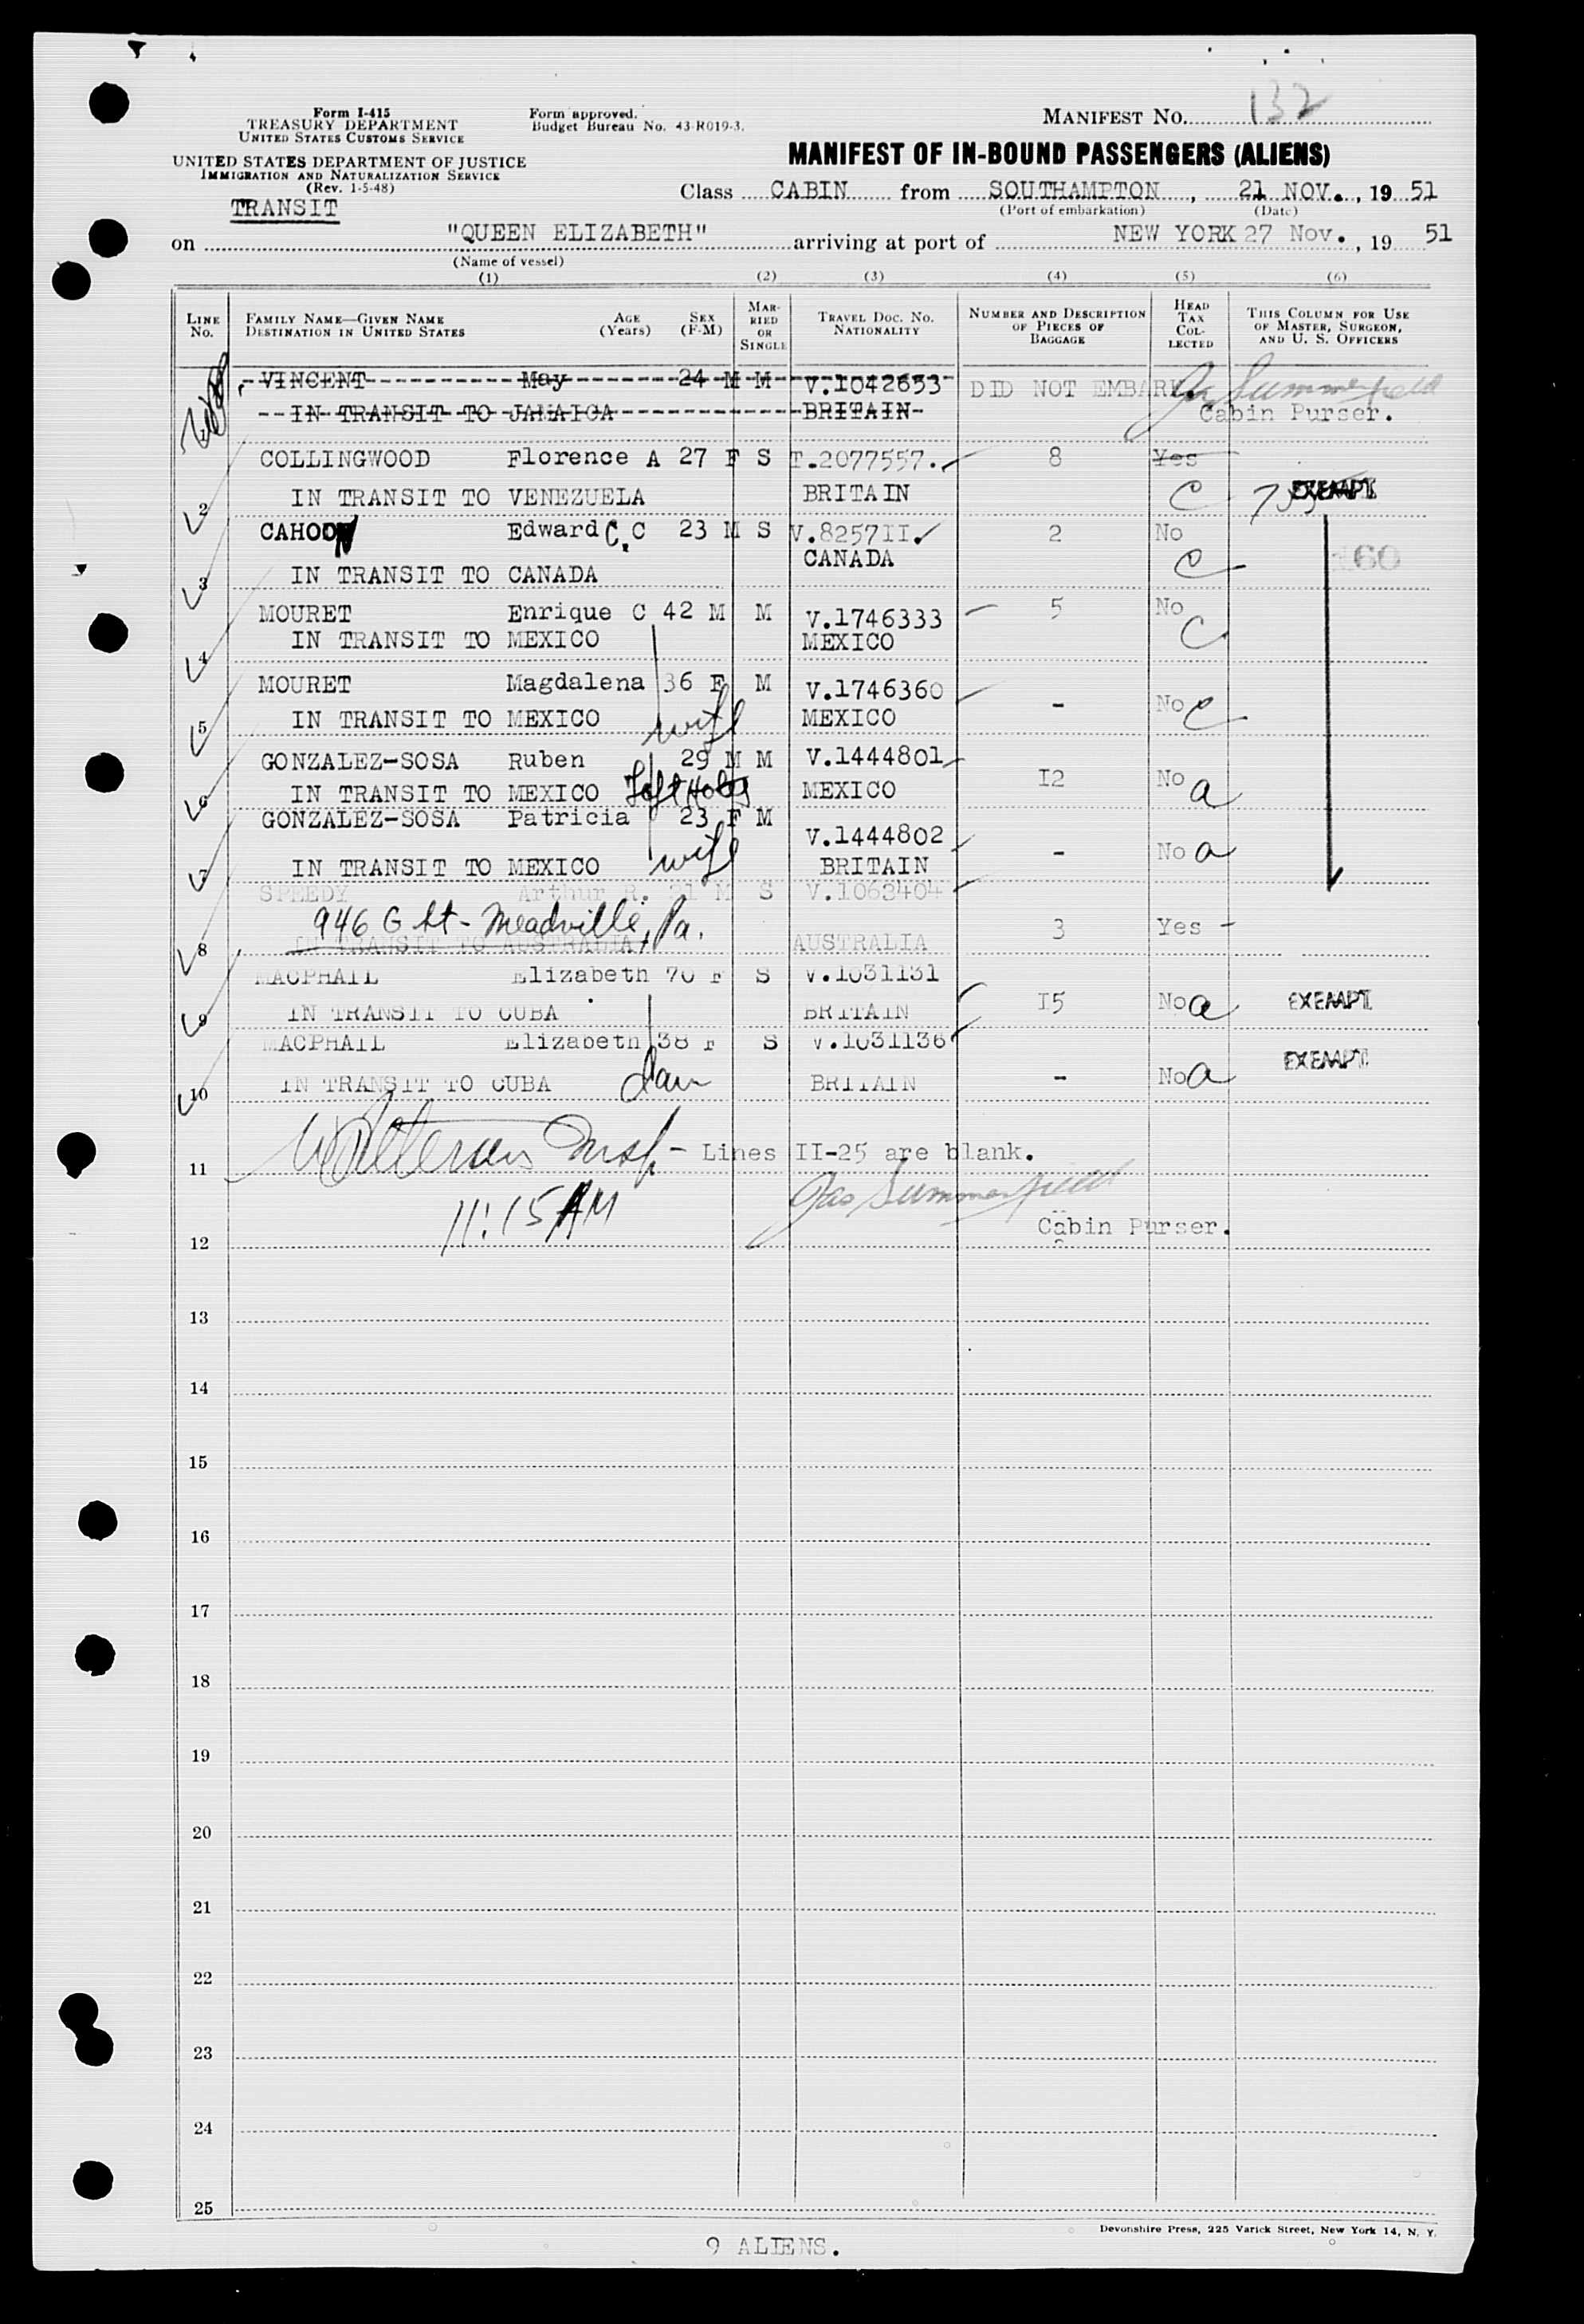 Form I-415
TREASURY DEPARTMENT
UNITED STATES CUSTOMS SERVICE
UNITED STATES DEPARTMENT OF JUSTICE
IMMIGRATION AND NATURALIZATION SERVICE
(Rev. 1-5-48)
TRANSIT
Form approved.
Budget Bureau No. 43-R019-3.
MANIFEST NO. 132
MANIFEST OF IN-BOUND PASSENGERS (ALIENS)
Class CABIN from SOUTHAMPTON, 21 NOV., 19 51
(Port of embarkation) (Date)
on "QUEEN ELIZABETH" arriving at port of NEW YORK 27 Nov., 19 51
(Name of vessel)
(1) (2) (3) (4) (5) (6)
LINE No. FAMILY NAME—GIVEN NAME DESTINATION IN UNITED STATES AGE (Years) SEX (F-M) MARRIED OR SINGLE TRAVEL DOC. NO. NATIONALITY NUMBER AND DESCRIPTION OF PIECES OF BAGGAGE HEAD TAX COLLECTED THIS COLUMN FOR USE OF MASTER, SURGEON, AND U. S. OFFICERS
VINCENT May 24 M M V.1042653 DID NOT EMBARK. Jas Summerfield
IN TRANSIT TO JAMAICA BRITAIN Cabin Purser.
COLLINGWOOD Florence A 27 F S T.2077557. 8 Yes
2 IN TRANSIT TO VENEZUELA BRITAIN C EXEMPT
CAHOON Edward C. C 23 M S V.825711 2 No
CANADA C 160
3 IN TRANSIT TO CANADA
MOURET Enrique C 42 M M V.1746333 5 No
4 IN TRANSIT TO MEXICO MEXICO C
MOURET Magdalena 36 F M V.1746360 - No C
5 IN TRANSIT TO MEXICO wife MEXICO
GONZALEZ-SOSA Ruben 29 M M V.1444801 12 No a
6 IN TRANSIT TO MEXICO MEXICO
GONZALEZ-SOSA Patricia 23 F M V.1444802 - No a
7 IN TRANSIT TO MEXICO wife BRITAIN
SPEEDY Arthur R. 21 M S V.1063404
946 G St - Meadville, Pa. 3 Yes -
8 IN TRANSIT TO AUSTRALIA AUSTRALIA
MACPHAIL Elizabeth 70 F S V.1031131
9 IN TRANSIT TO CUBA BRITAIN 15 No a EXEMPT
MACPHAIL Elizabeth 38 F S V.1031136
10 IN TRANSIT TO CUBA dau BRITAIN - No a EXEMPT
11 Insp - Lines II-25 are blank.
11:15 AM Jas Summerfield
12 Cabin Purser.
13
14
15
16
17
18
19
20
21
22
23
24
25
Devonshire Press, 225 Varick Street, New York 14, N. Y.
9 ALIENS.